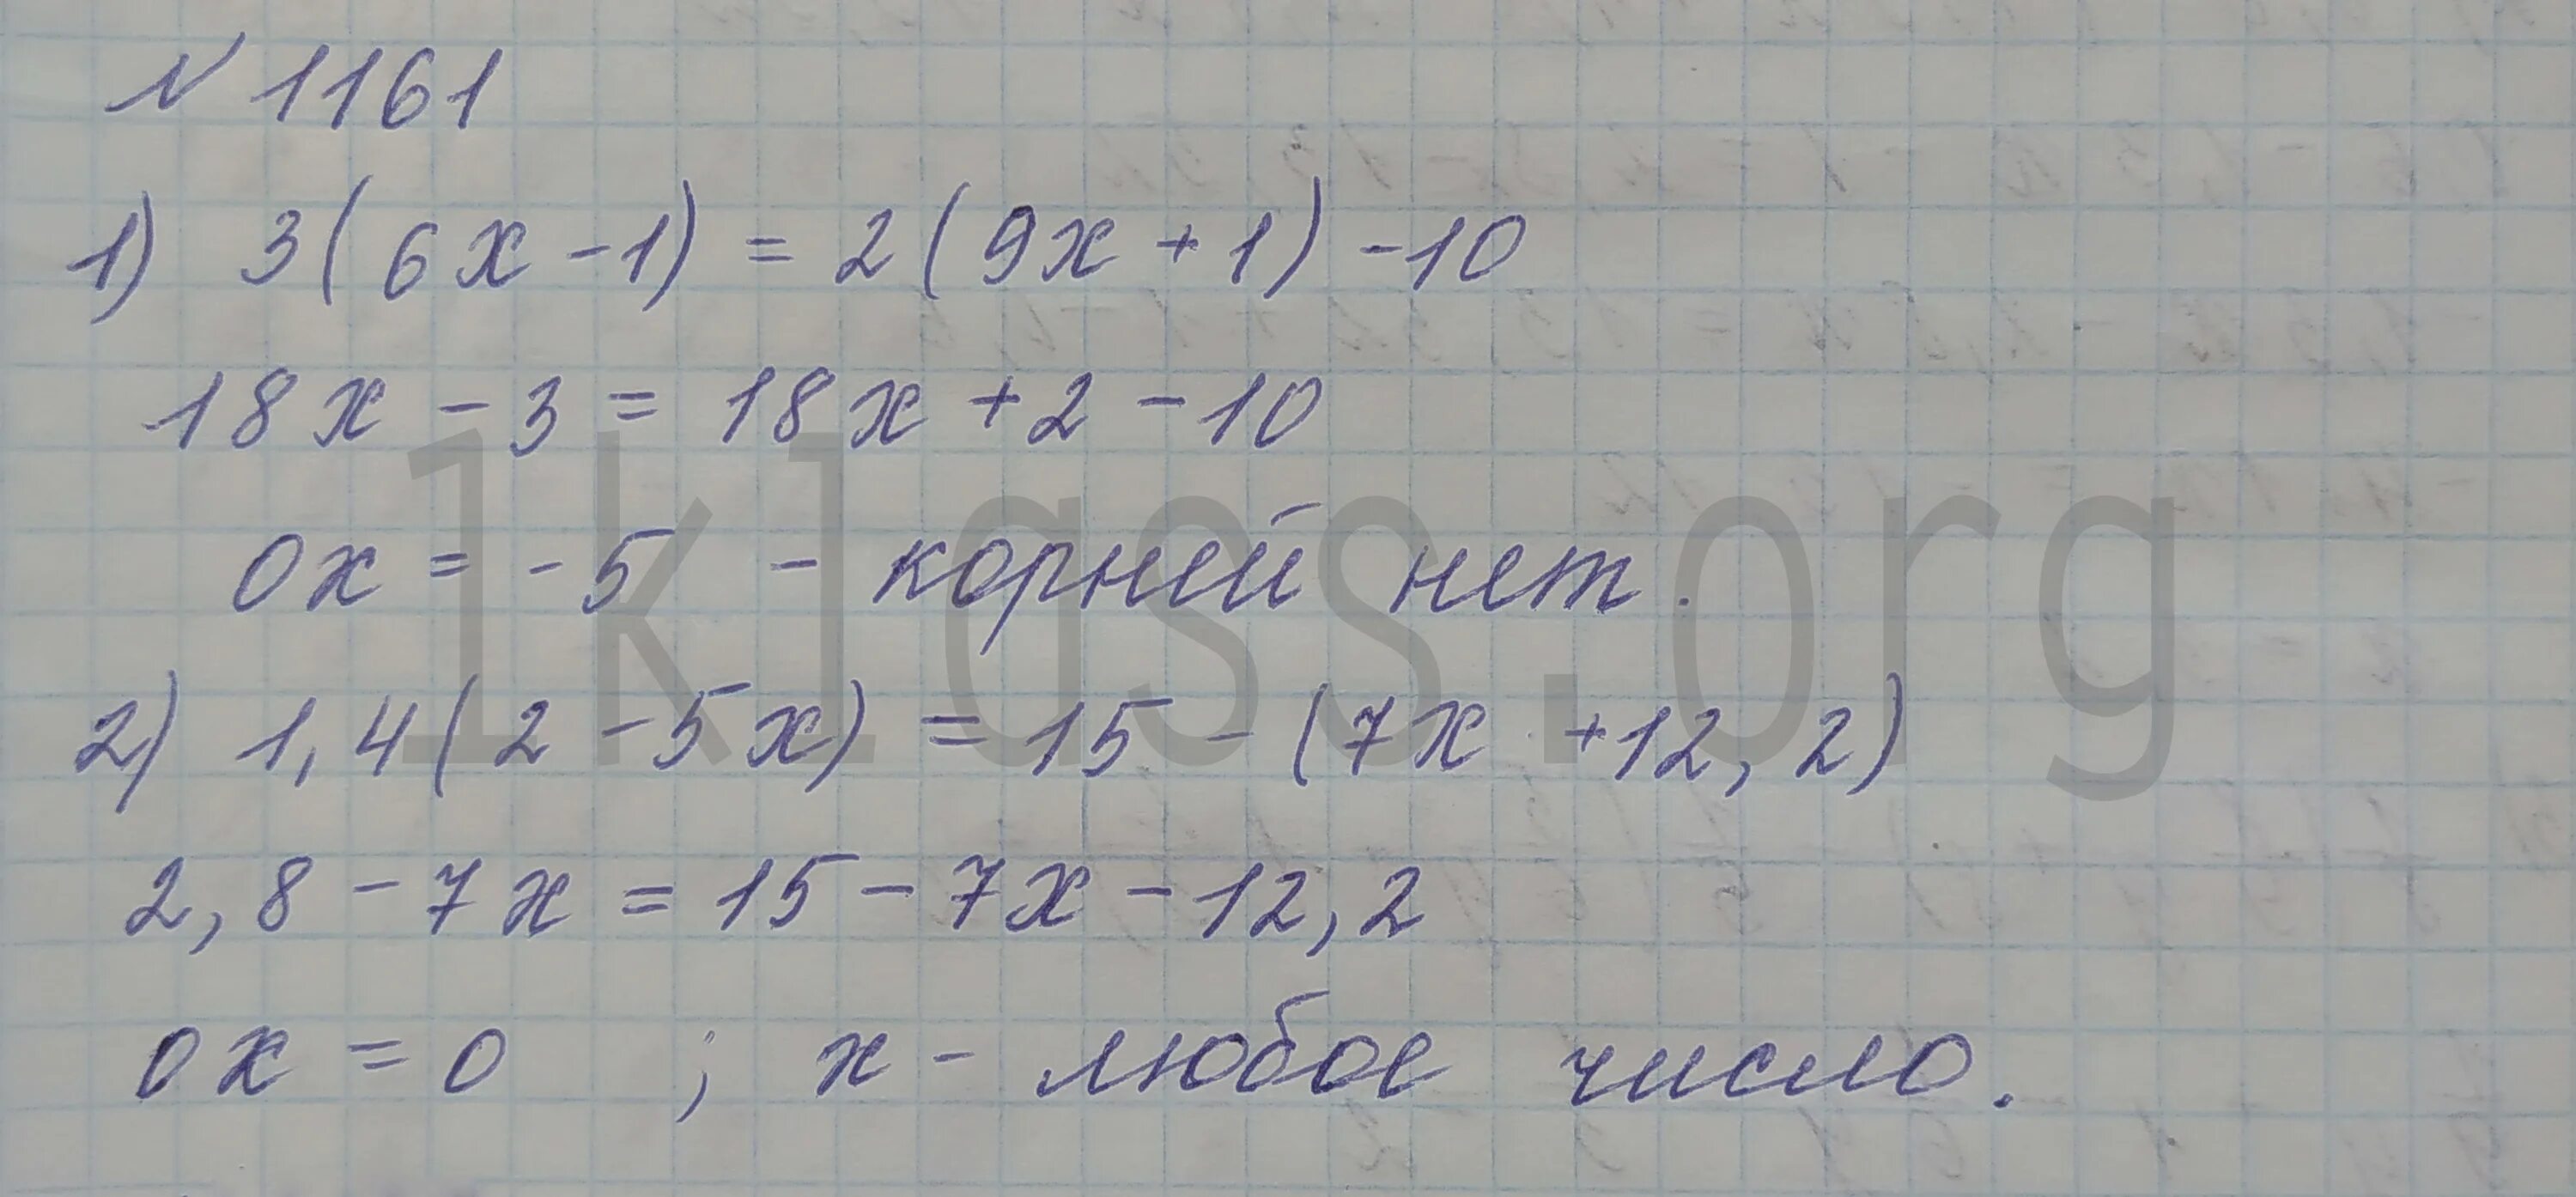 N 1161
1) 3(6x - 1) = 2(9x + 1) - 10
18x - 3 = 18x + 2 - 10
0x = - 5 - корней нет.
2) 1,4(2 - 5x) = 15 - (7x + 12,2)
2,8 - 7x = 15 - 7x - 12,2
0x = 0 ; x - любое число.
1klass.org